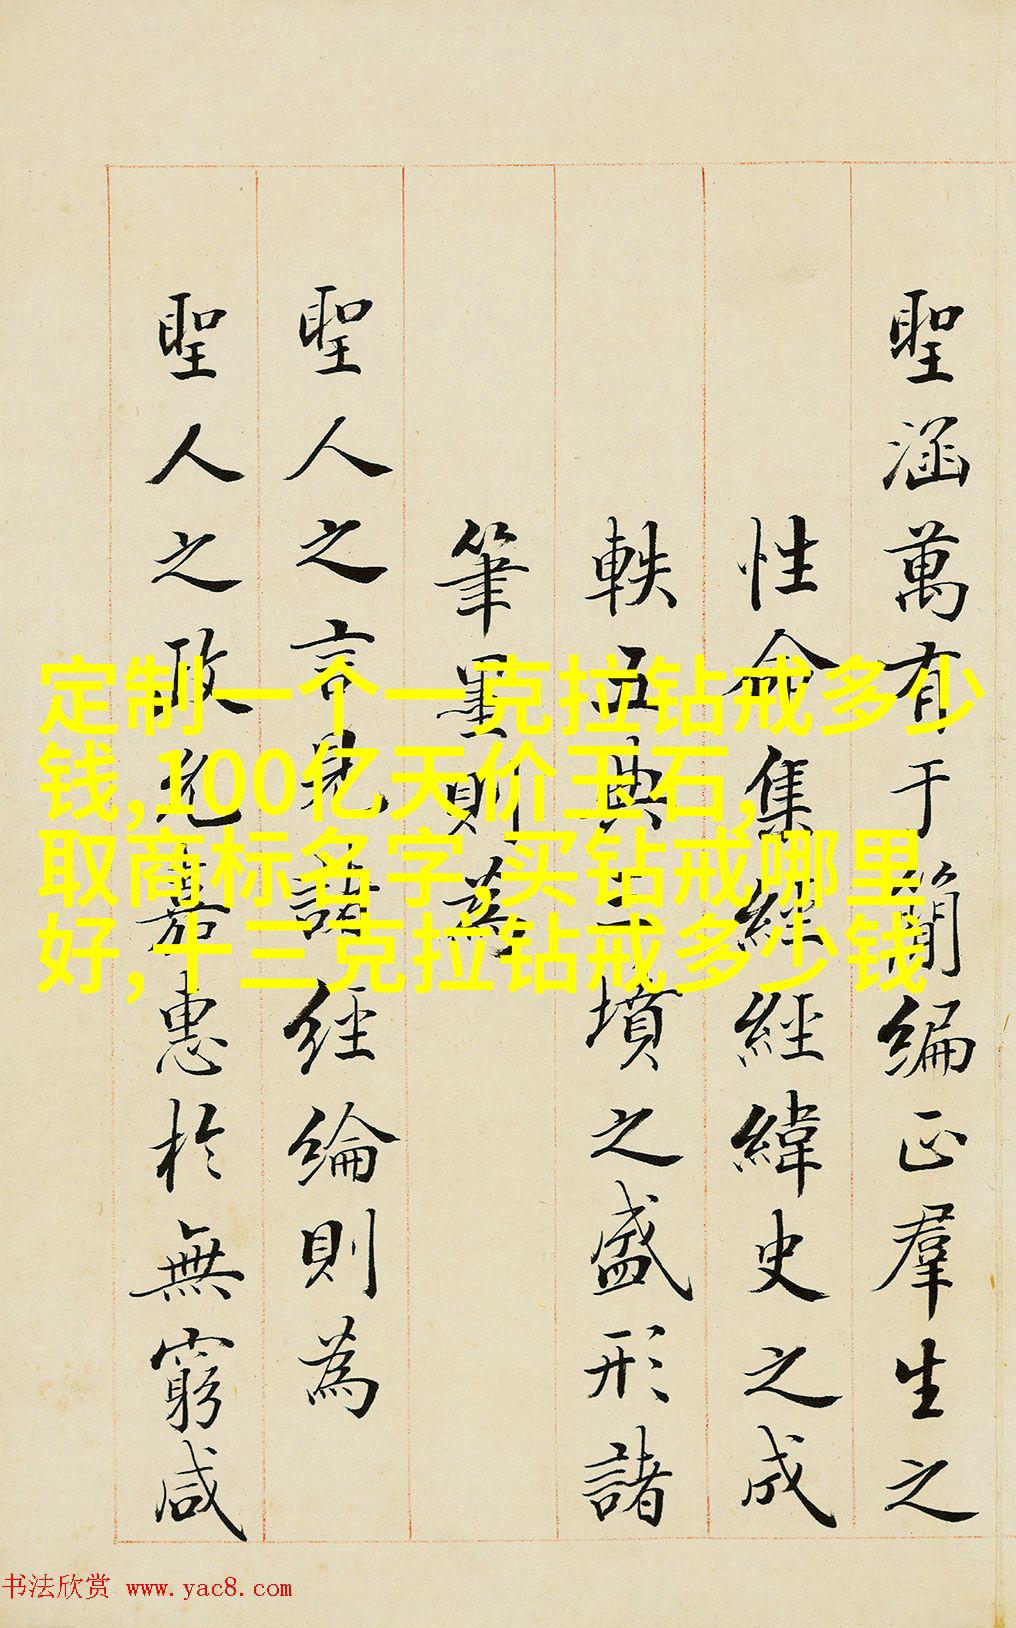 聖涵萬有于簡编正羣生之
性命集經經緯史之成
軼五典三墳之盛形諸
筆墨則為
聖人之言見諸經綸則為
聖人之政光嘉惠於無窮咸
定制一个一克拉钻戒多少
钱,100亿天价玉石,
取商标名字,买钻戒哪里
好,十三克拉钻戒多少钱
书法欣赏 www.yac8.com